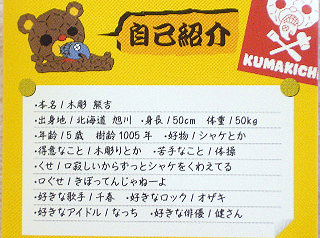 自己紹介
KUMAKICHI
・本名/木彫 熊吉
・出身地/北海道 旭川 ・身長/50cm 体重/50kg
・年齢/5歳 樹齢1005年 ・好物/シャケとか
・得意なこと/木彫りとか ・苦手なこと/体操
・くせ/口寂しいからずっとシャケをくわえてる
・口ぐせ/きぼってんじゃねーよ
・好きな歌手/千春 ・好きなロック/オザキ
・好きなアイドル/なっち ・好きな俳優/健さん